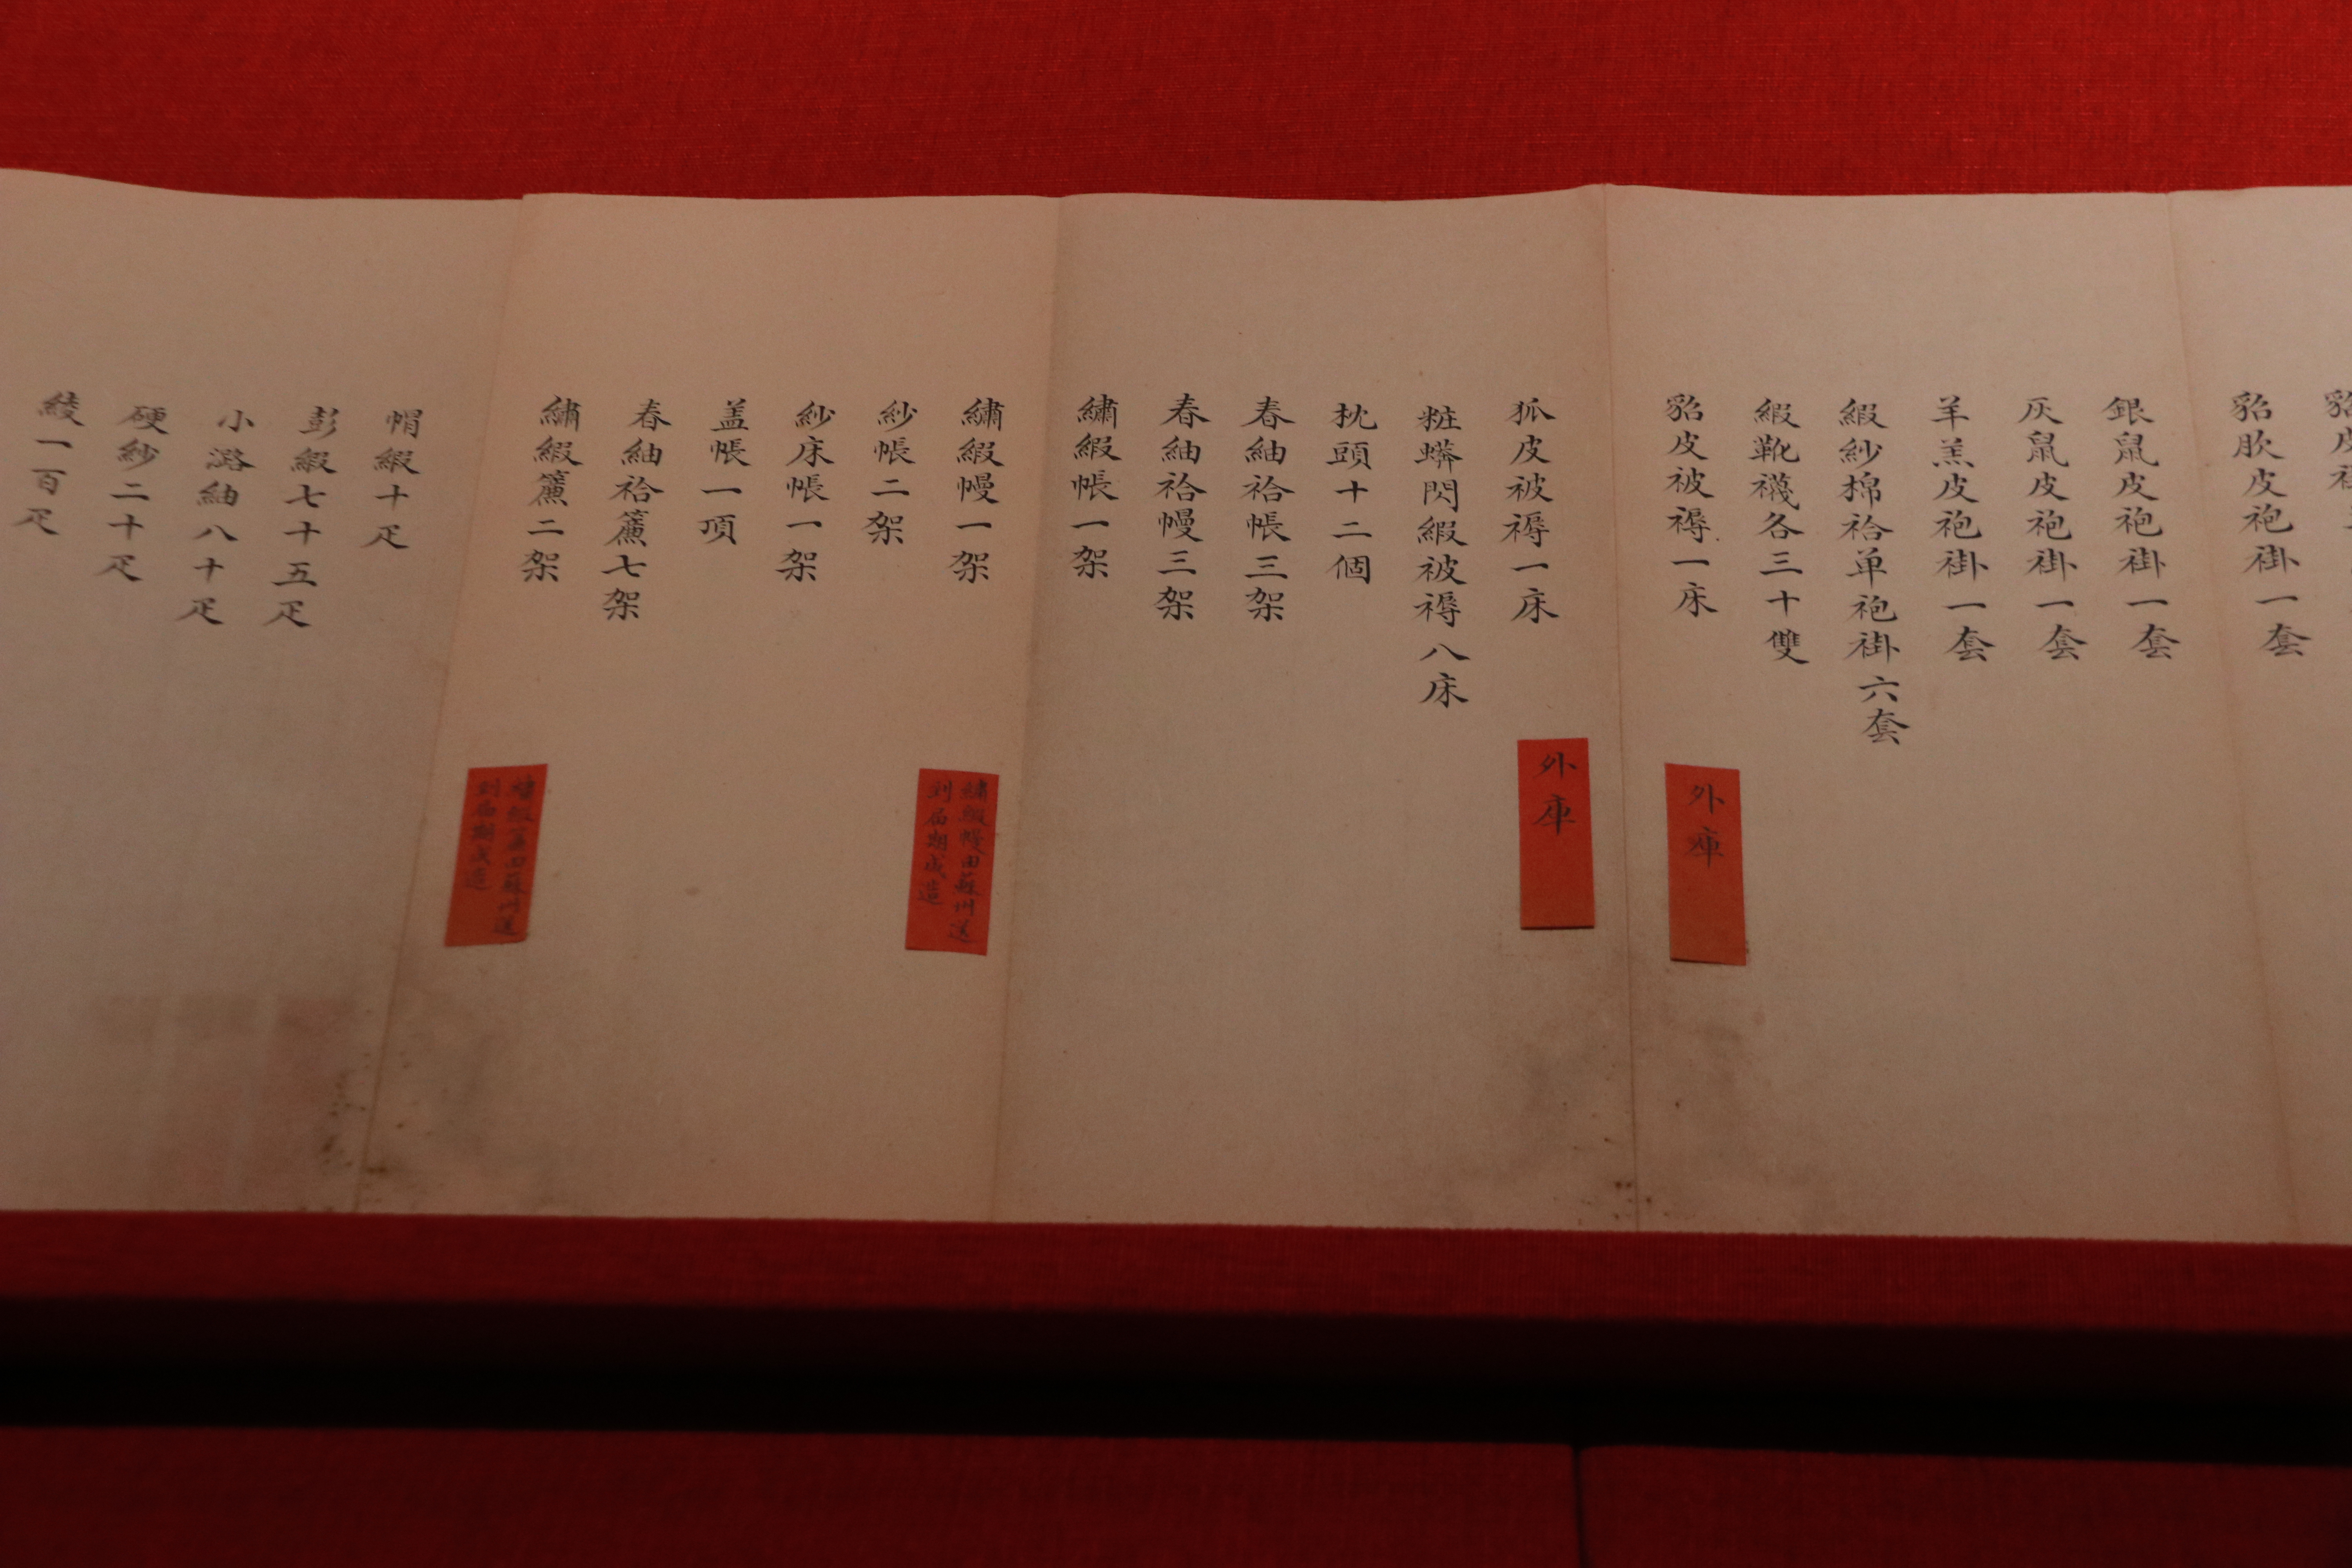 貂皮
貂肷皮袍褂一套
銀鼠皮袍褂一套
灰鼠皮袍褂一套
羊羔皮袍褂一套
緞紗棉袷单袍褂六套
緞靴襪各三十雙
貂皮被褥一床
外庫
狐皮被褥一床
外庫
粧蟒閃緞被褥八床
枕頭十二個
春紬袷帳三架
春紬袷幔三架
繡緞帳一架
繡緞幔一架
繡緞幔由蘇州送
到届期成造
紗帳二架
紗床帳一架
盖帳一項
春紬袷簾七架
繡緞簾二架
繡緞簾由蘇州送
到届期成造
帽緞十疋
彭緞七十五疋
小潞紬八十疋
硬紗二十疋
綾一百疋